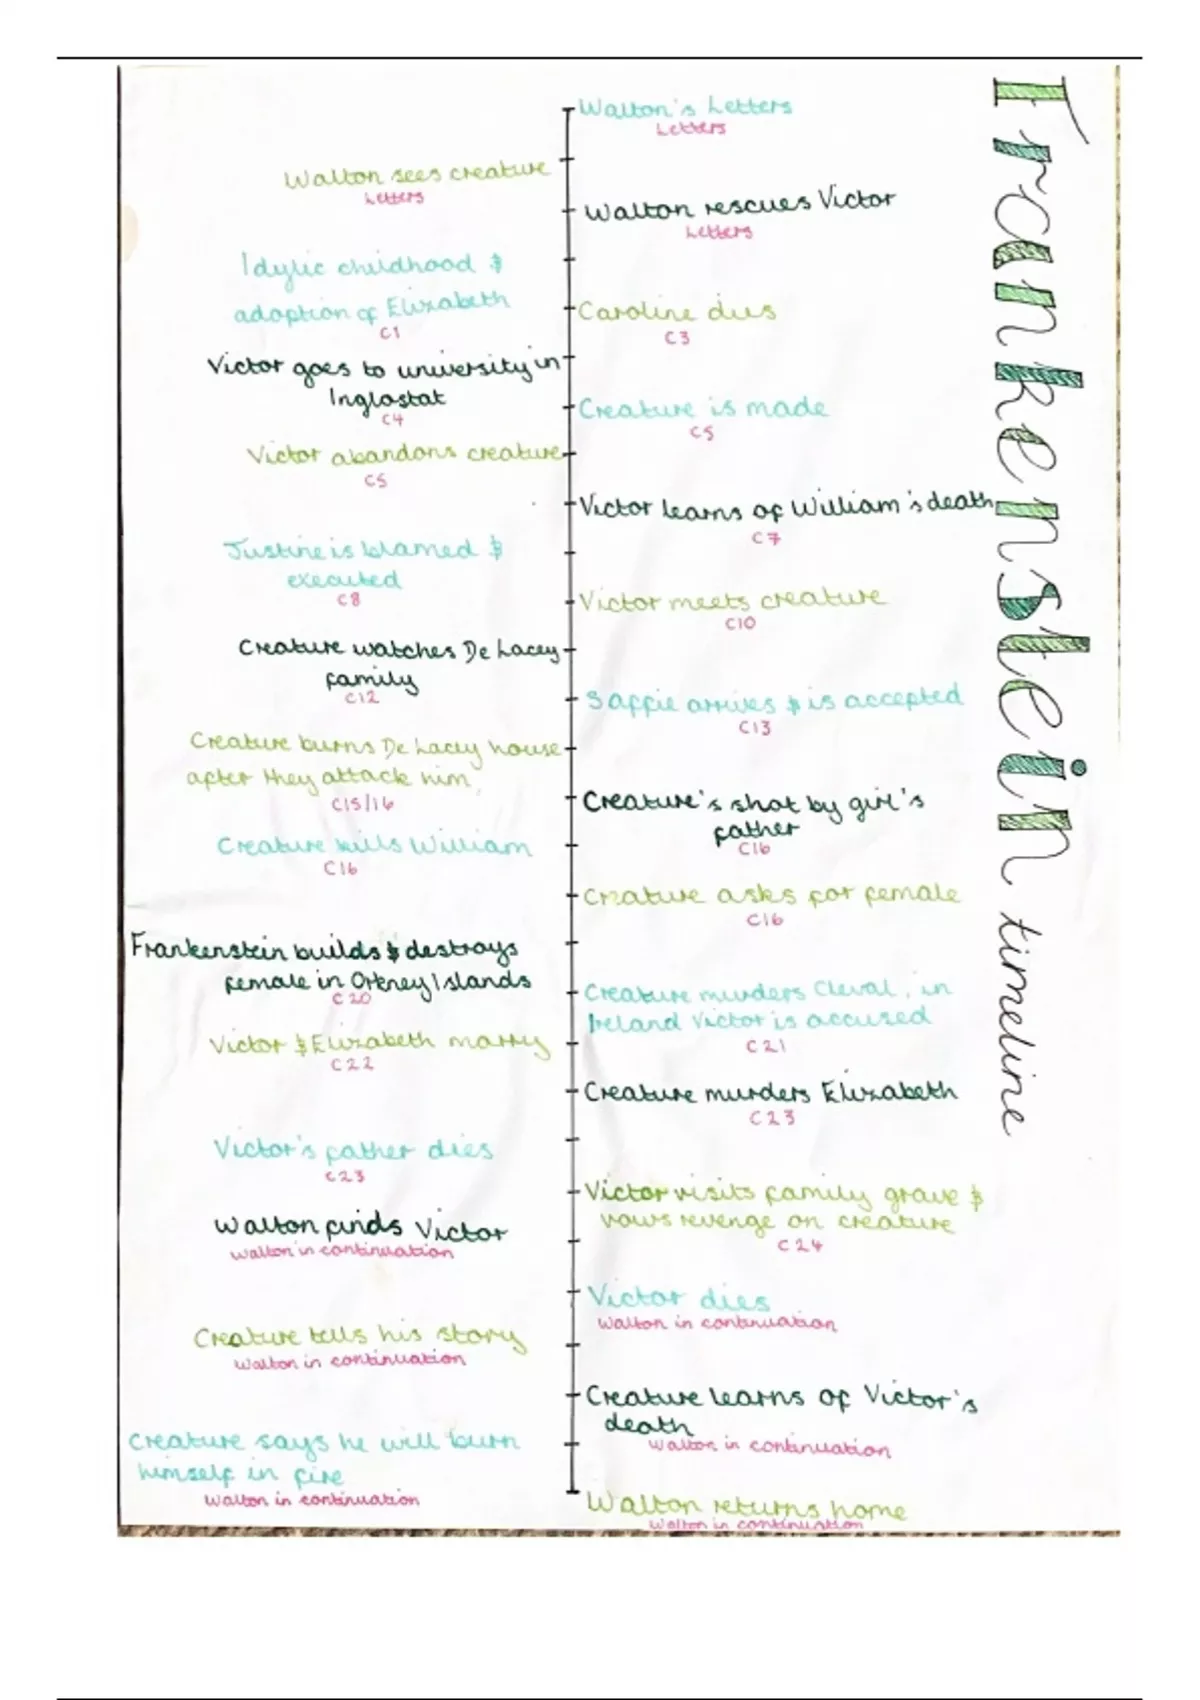 Frankenstein timeline
Walton's Letters
Letters
Walton sees creature
Letters
Walton rescues Victor
Letters
Idylic childhood &
adoption of Elizabeth
C1
Caroline dies
C3
Victor goes to university in
Inglostat
C4
Creature is made
C5
Victor abandons creature
C5
Victor learns of William's death
C7
Justine is blamed &
executed
C8
Victor meets creature
C10
Creature watches De Lacey
family
C12
Saffie arrives & is accepted
C13
Creature burns De Lacey house
after they attack him
C15/16
Creature's shot by girl's
father
C16
Creature kills William
C16
Creature asks for female
C16
Frankenstein builds & destroys
female in Orkney Islands
C20
Creature murders Cleval, in
Ireland Victor is accused
C21
Victor & Elizabeth marry
C22
Creature murders Elizabeth
C23
Victor's father dies
C23
Victor visits family grave &
vows revenge on creature
C24
Walton finds Victor
Walton in continuation
Victor dies
Walton in continuation
Creature tells his story
Walton in continuation
Creature learns of Victor's
death
Walton in continuation
Creature says he will burn
himself in fire
Walton in continuation
Walton returns home
Walton in continuation